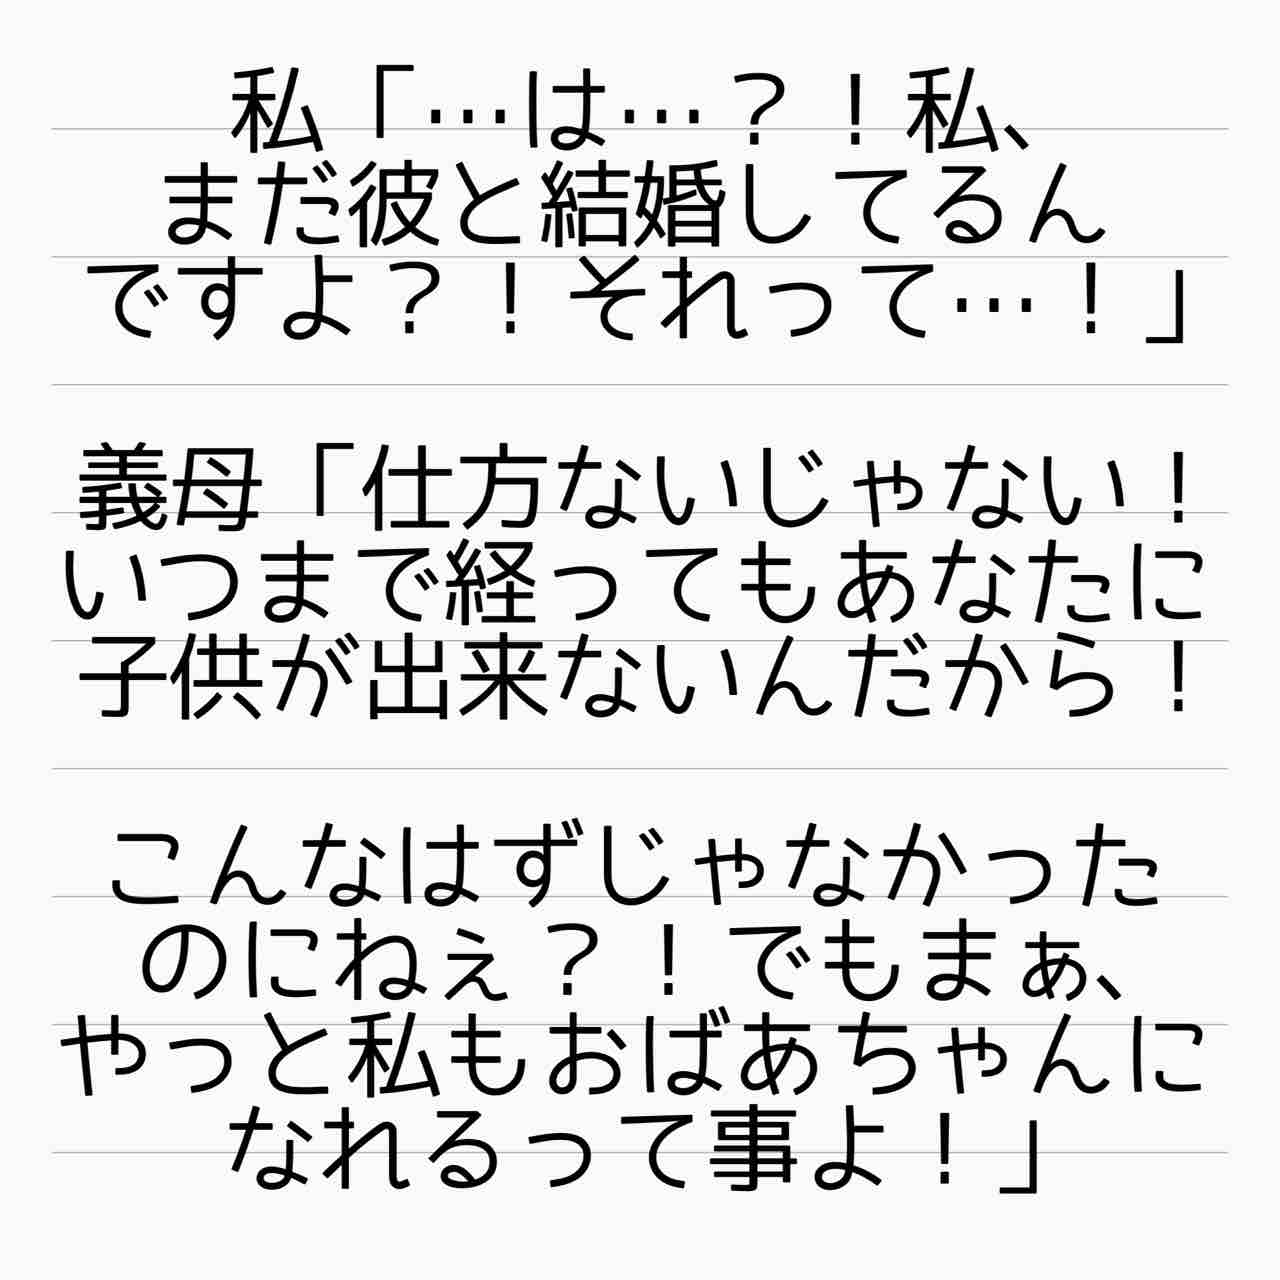 私「…は…？！私、
まだ彼と結婚してるん
ですよ？！それって…！」
義母「仕方ないじゃない！
いつまで経ってもあなたに
子供が出来ないんだから！
こんなはずじゃなかった
のにねぇ？！でもまぁ、
やっと私もおばあちゃんに
なれるって事よ！」